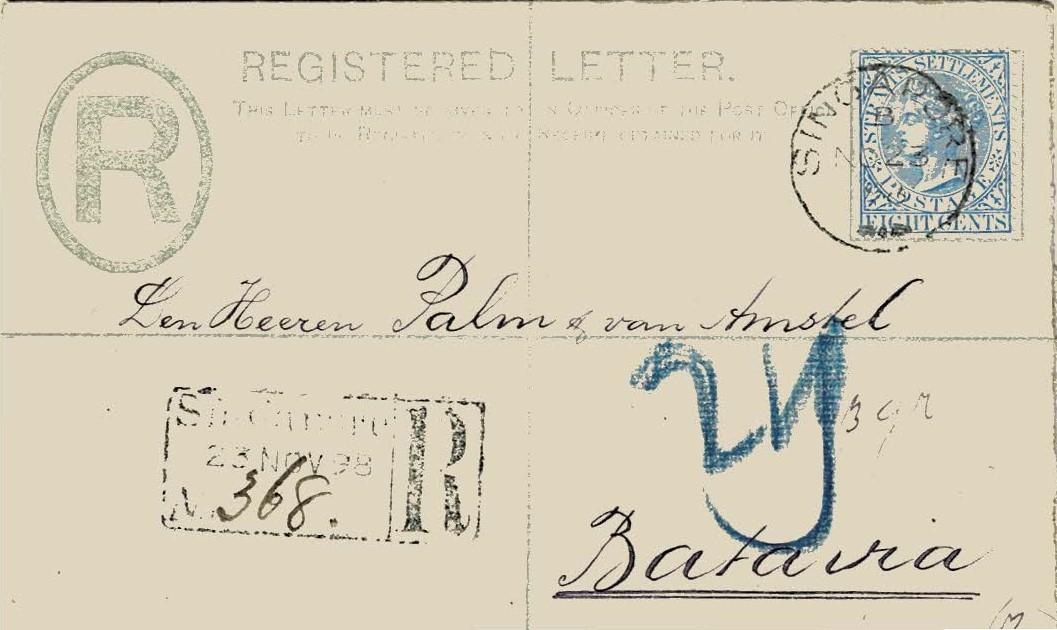 R
REGISTERED LETTER.
THIS LETTER MUST BE GIVEN TO AN OFFICER OF THE POST OFFICE
TO BE REGISTERED AND A RECEIPT OBTAINED FOR IT
STRAITS SETTLEMENTS
POSTAGE
EIGHT CENTS
SINGAPORE
B
NO 23
Den Heeren Palm & van Amstel
SINGAPORE
23 NOV 98
R
No 368.
Batavia